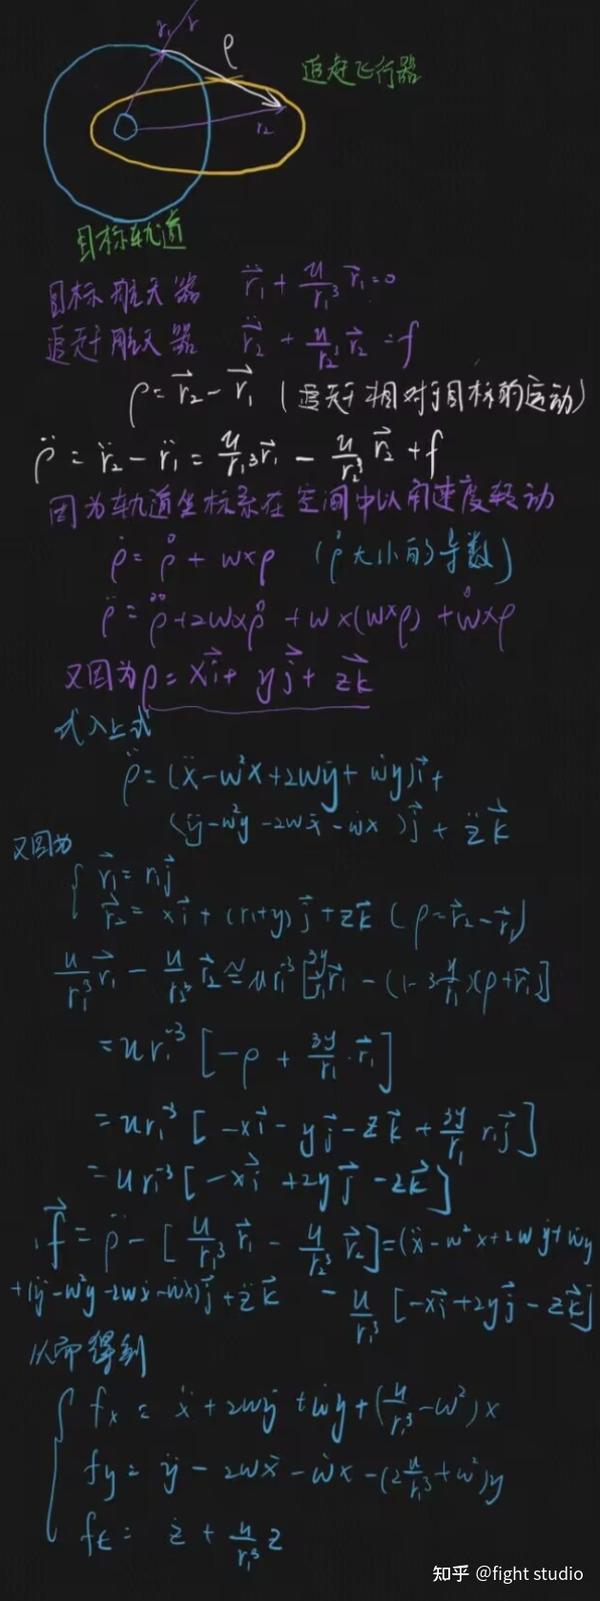 r₁ r
ρ
追赶飞行器
r₂
目标轨道
目标航天器 r̈₁ + u/r₁³ r⃗₁ = 0
追赶航天器 r̈₂ + u/r₂³ r⃗₂ = f
ρ = r⃗₂ - r⃗₁ (追赶相对于目标的运动)
ρ̈ = r̈₂ - r̈₁ = u/r₁³ r⃗₁ - u/r₂³ r⃗₂ + f
因为轨道坐标系在空间中以角速度转动
ρ̇ = ρ° + w×ρ (ρ° 大小的导数)
ρ̈ = ρ°° + 2w×ρ° + w×(w×ρ) + w°×ρ
又因为 ρ = xi⃗ + yj⃗ + zk⃗
式入上式
ρ̈ = (ẍ - w²x + 2wẏ + ẇy)i⃗ +
(ÿ - w²y - 2wẋ - ẇx)j⃗ + z̈k⃗
又因为
{ r⃗₁ = r₁j⃗
r⃗₂ = xi⃗ + (r₁+y)j⃗ + zk⃗ (ρ = r⃗₂ - r⃗₁)
u/r₁³ r⃗₁ - u/r₂³ r⃗₂ ≅ ur₁⁻³ [ r⃗₁ - (1-3y/r₁)(ρ+r⃗₁)]
= ur₁⁻³ [-ρ + 3y/r₁ · r⃗₁]
= ur₁⁻³ [-xi⃗ - yj⃗ - zk⃗ + 3y/r₁ r₁j⃗]
= ur₁⁻³ [-xi⃗ + 2yj⃗ - zk⃗]
f⃗ = ρ̈ - [u/r₁³ r⃗₁ - u/r₂³ r⃗₂] = (ẍ - w²x + 2wẏ + ẇy
+ (ÿ - w²y - 2wẋ - ẇx)j⃗ + z̈k⃗ - u/r₁³ [-xi⃗ + 2yj⃗ - zk⃗]
从而得到
{ fx = ẍ + 2wẏ + ẇy + (u/r₁³ - w²)x
fy = ÿ - 2wẋ - ẇx - (2u/r₁³ + w²)y
fz = z̈ + u/r₁³ z
知乎 @fight studio